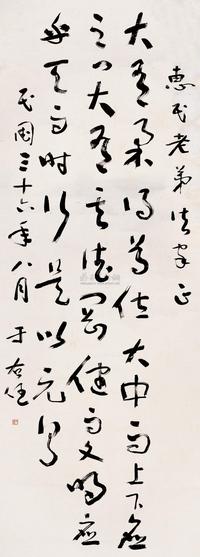 惠民老弟法家正
大有柔得尊位大中而上下應
之曰大有其德剛健而文明應
乎天而時行是以元亨
民國三十六年八月 于右任